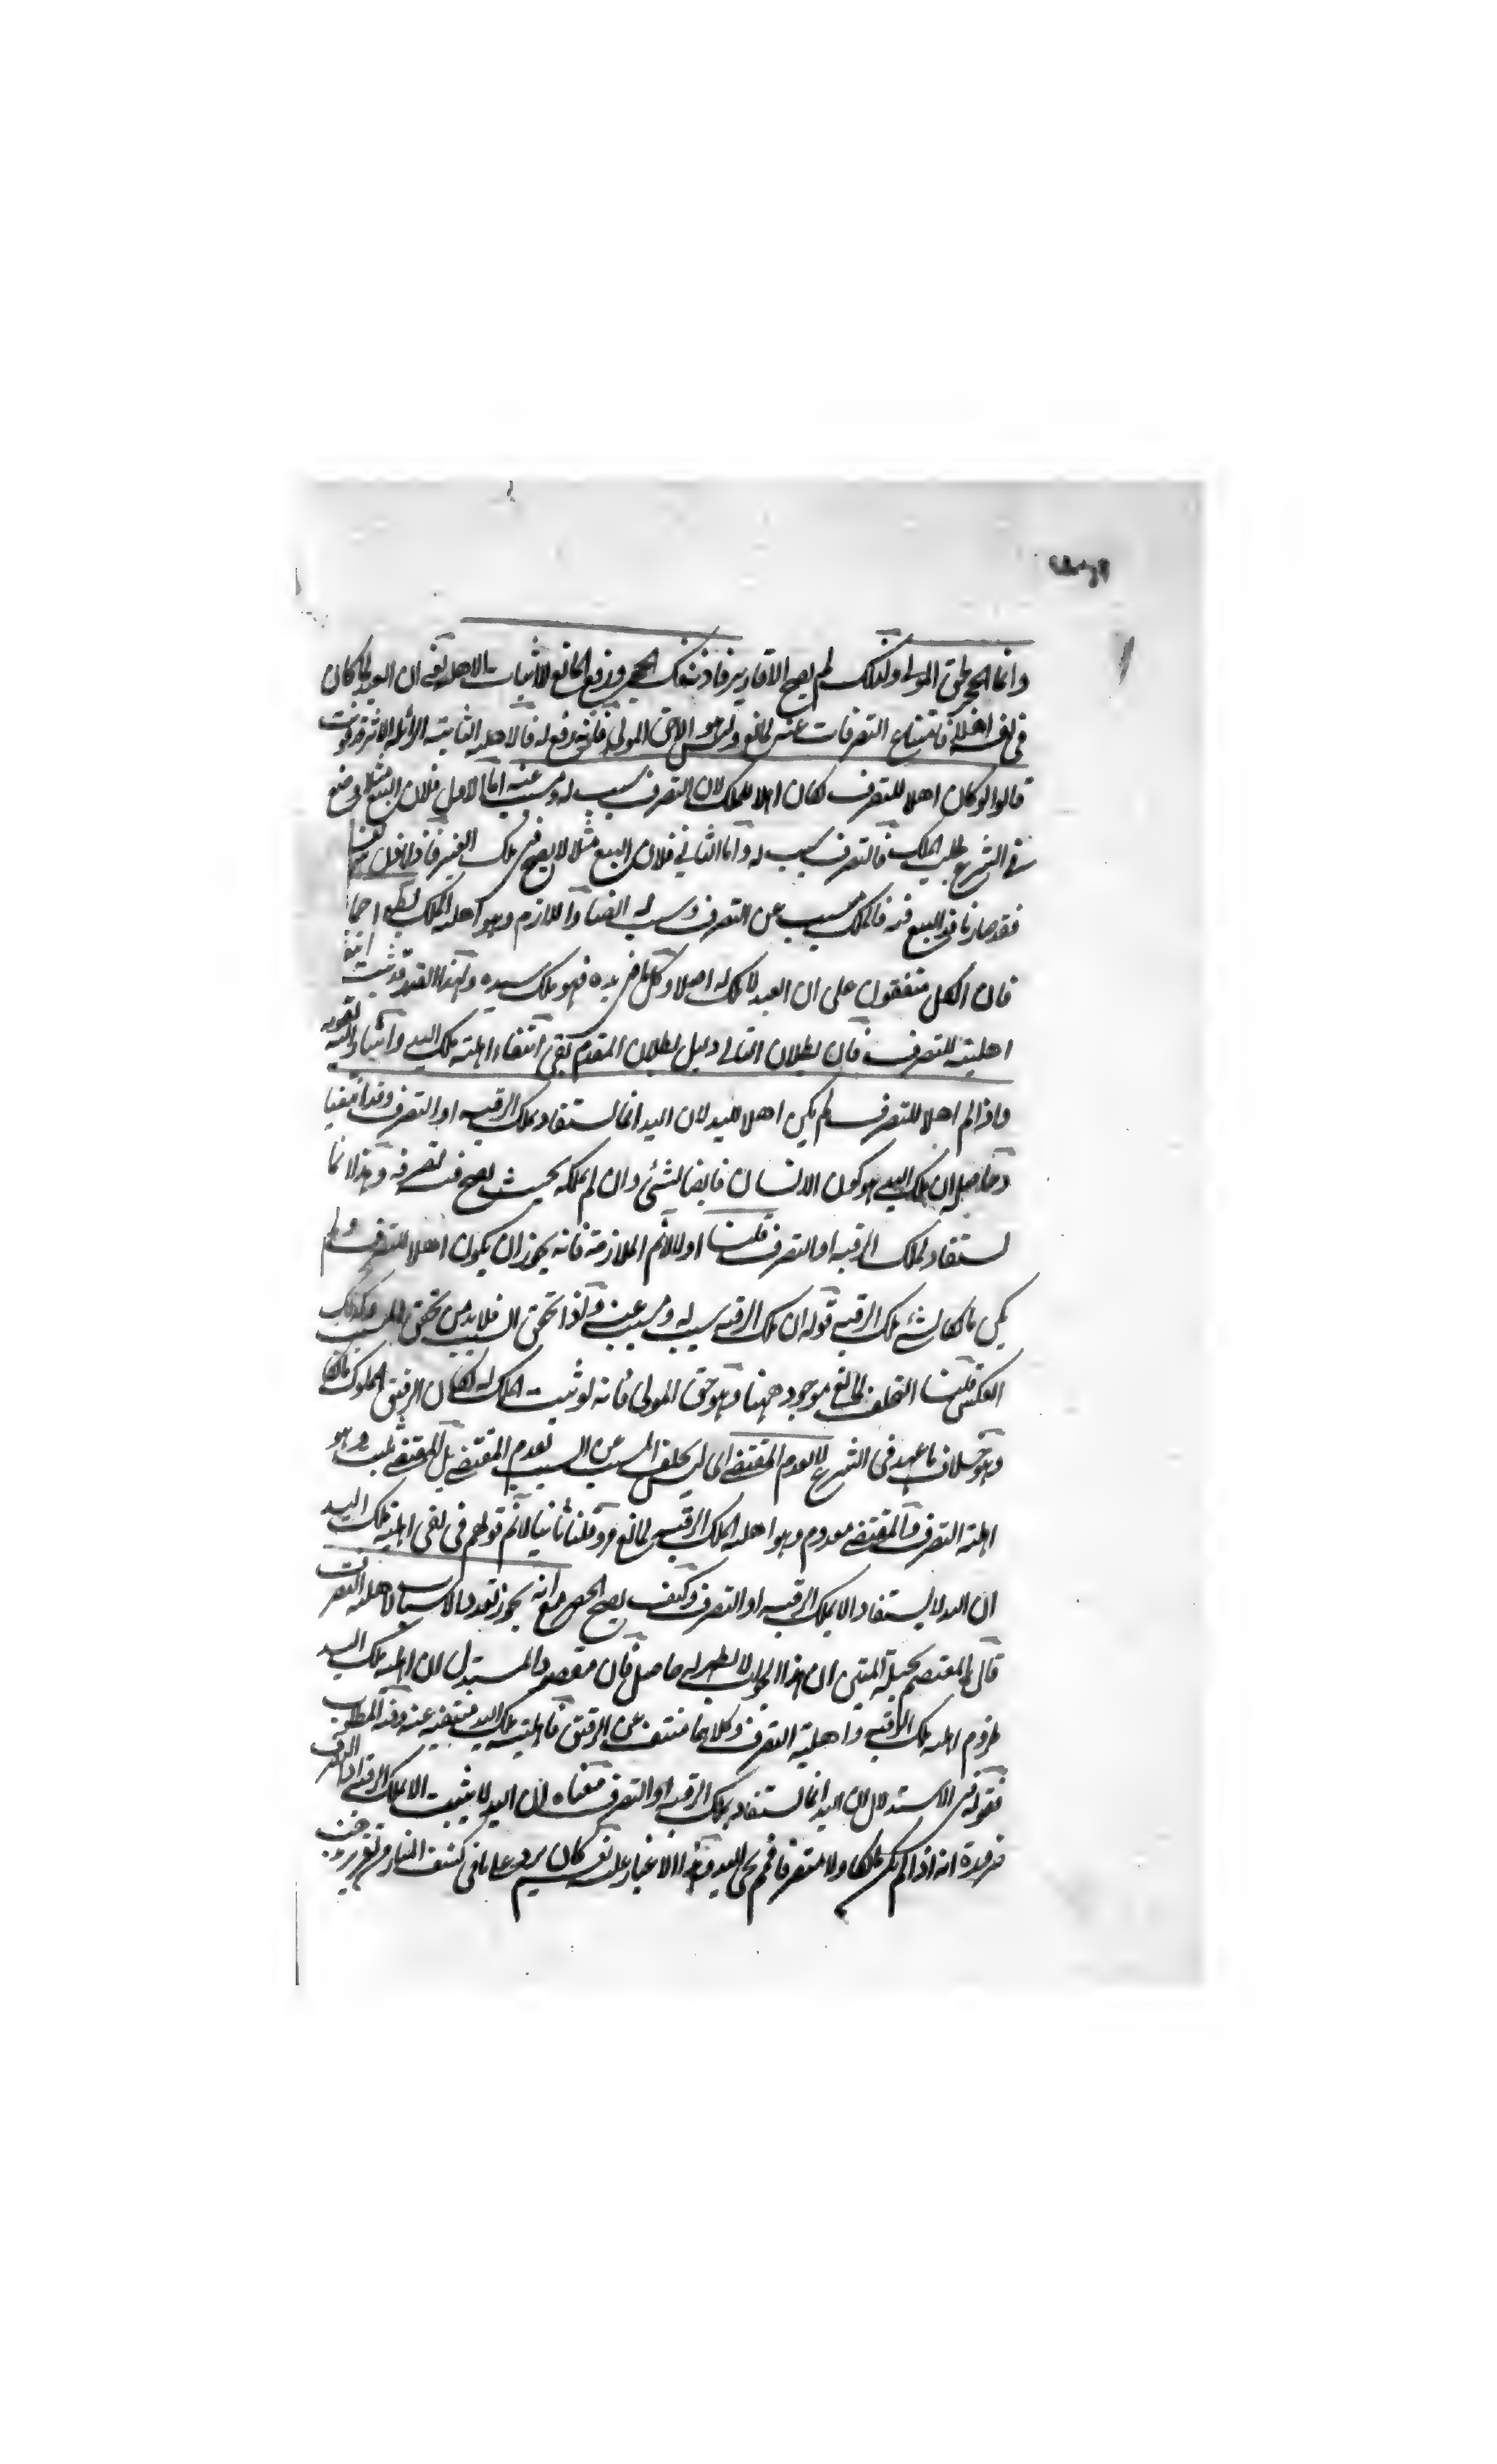 وانما الحجر لحق المولى ولذلك لم يصح الاقارير فاذنه فك الحجر ورفع المانع لا اثبات الاهلية يعنى ان العبد لما كان
فى نفسه اهلا فامتناع التصرفات عنه لمانع وليس هو الا حق المولى فاذنه رفع له فالاهلية الثابتة
قالوا لو كان اهلا للتصرف لكان اهلا للملك لان التصرف سبب له ومسبب عنه اما الاول فلان البيع مثلا وضع
فى الشرع لطلب الملك فالتصرف سبب له واما الثانى فلان البيع مثلا لا يصح فى ملك الغير فاذا
فقد صار نافذ البيع فيه فالملك مسبب عن التصرف وسبب له ايضا واللازم وهو اهلية الملك
فان الكل متفقون على ان العبد لا ملك له اصلا وكل ما فى يده فهو ملك سيده وبهذا القدر قد ثبت
اهليته للتصرف فان بطلان التالى دليل بطلان المقدم بقى انتفاء اهلية ملك اليد واشار اليه بقوله
واذا لم اهلا للتصرف لم يكن اهلا لليد لان اليد انما تستفاد بملك الرقبة او التصرف وقد انتفيا
وحاصله ان ملك اليد هو كون الانسان قابضا لشئ وان لم يملكه بحيث يصح فيه تصرفه وهذا انما
تستفاد لملك الرقبة او التصرف قلنا اولا لا نم الملازمة فانه يجوز ان يكون اهلا للتصرف ولم
يكن مالكا لشئ ملك الرقبة قوله ان ملك الرقبة سبب له ومسبب عنه واذا تحقق السبب فلا بد من تحقق المسبب وكذلك
العكس قلنا التخلف لمانع موجود ههنا وهو حق المولى فانه لو ثبت الملك له لكان الرقيق المملوك مالكا
وهو خلاف ما عهد فى الشرع لا لعدم المقتضى اى ليس تخلف المسبب عن السبب لعدم المقتضى بل المقتضى ثابت وهو
اهلية التصرف والمقتضى معدوم وهو اهلية الملك الرقبة لمانع وقلنا ثانيا لا نم قولهم فى نفى اهلية ملك اليد
ان اليد لا يستفاد الا بملك الرقبة او التصرف وكيف يصح الحصر مع انه يجوز تعدد الاسباب لاهلية التصرف
قال المعتصم بحبله المتين ان هذا الجواب لا يظهر له حاصل فان مقصود المستدل ان اهلية ملك اليد
ملزوم اهلية ملك الرقبة واهلية التصرف وكلاهما منتف عن الرقيق فاهلية ملك اليد منتفية عنه وهذا المطلوب
فقوله فى الاستدلال لان اليد انما تستفاد بملك الرقبة او التصرف معناه ان اليد لا يثبت الا بملك الرقبة او التصرف
ضرورة انه اذا لم يكن مالكا ولا متصرفا فبم يحق اليد وهذا لا غبار عليه نعم كان يرد على ما فى كشف المنار من تقرير